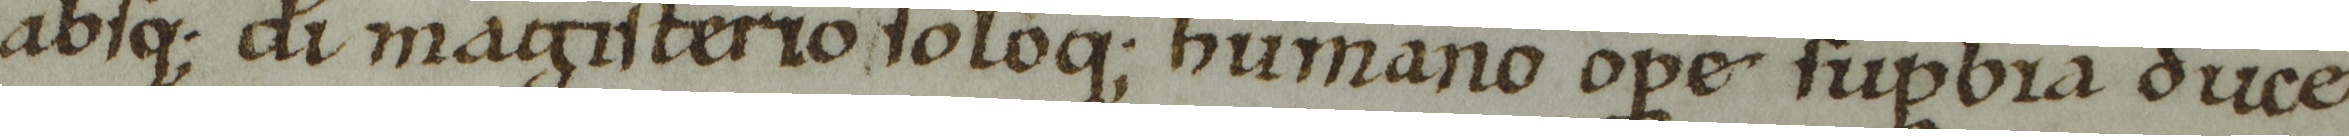 absq; di magisterio soloq; humano ope supbia duce